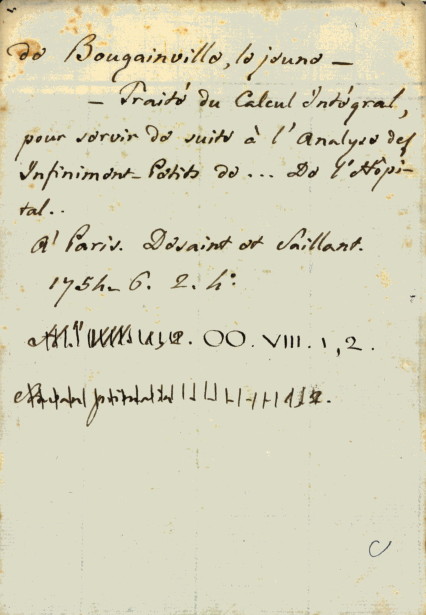 de Bougainville, le jeune —
— Traité du Calcul Intégral,
pour servir de suite à l'Analyse des
Infiniment-Petits de ... De l'Hôpi-
tal..
A' Paris. Desaint et Saillant.
1754-6. 2. 4°.
OO. VIII. 1, 2.